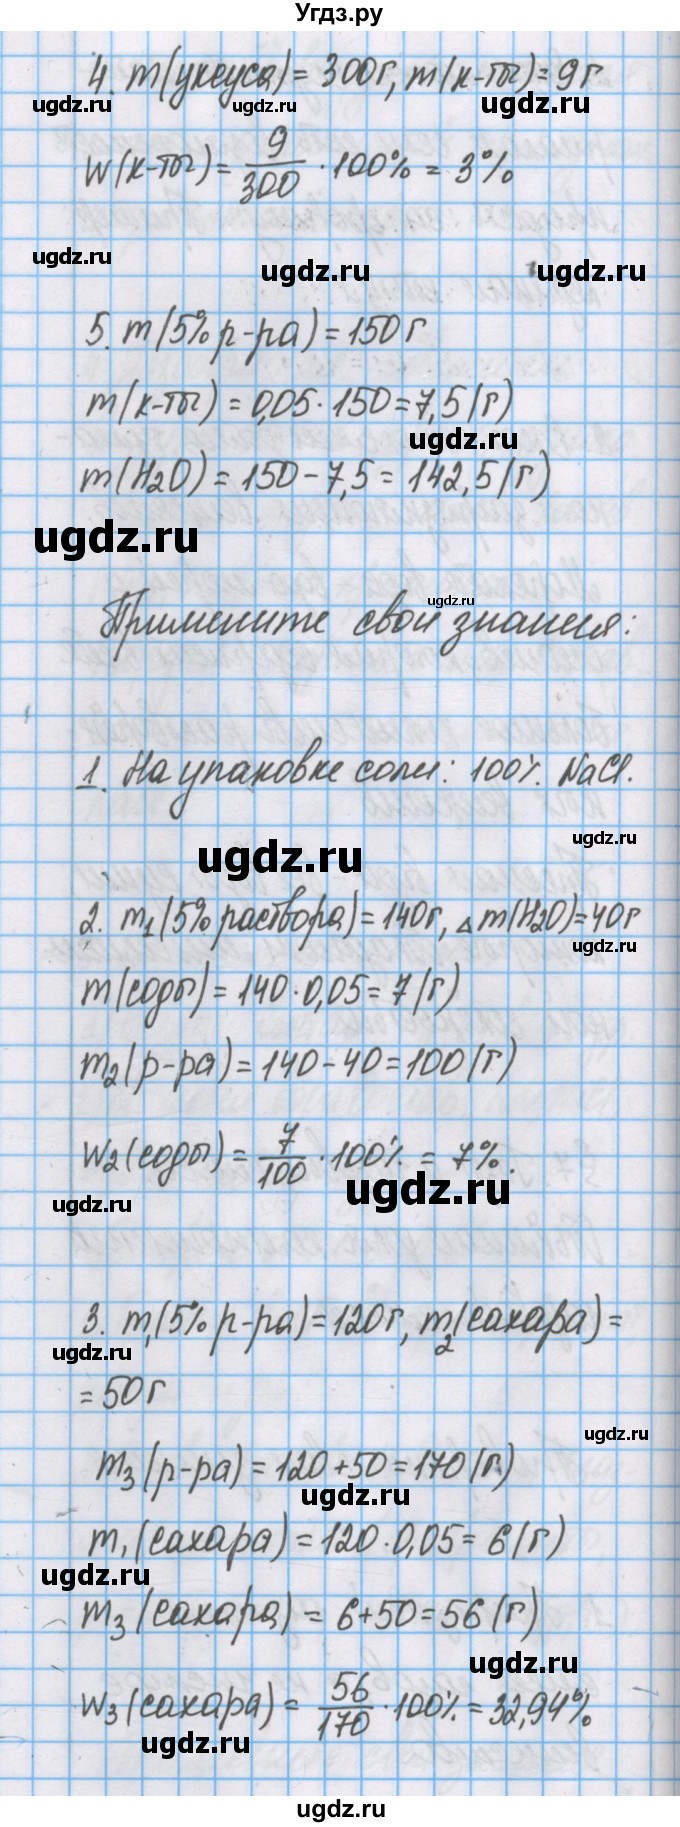 Угдз.ру
4. m(уксуса) = 300г, m(к-ты) = 9г
ugdz.ru ugdz.ru ugdz.ru
w(к-ты) = 9/300 · 100% = 3%
ugdz.ru ugdz.ru ugdz.ru
5. m(5% р-ра) = 150 г
m(к-ты) = 0,05 · 150 = 7,5 (г)
ugdz.ru
m(H2O) = 150 - 7,5 = 142,5 (г)
ugdz.ru
ugdz.ru
Примените свои знания:
1. На упаковке соли: 100% NaCl.
ugdz.ru
ugdz.ru
2. m1(5% раствора) = 140г, Δm(H2O) = 40г
ugdz.ru
m(соды) = 140 · 0,05 = 7 (г)
m2(р-ра) = 140 - 40 = 100 (г)
w2(соды) = 7/100 · 100% = 7%.
ugdz.ru ugdz.ru
3. m1(5% р-ра) = 120г, m2(сахара) =
ugdz.ru
= 50 г
ugdz.ru
m3(р-ра) = 120 + 50 = 170 (г)
ugdz.ru
m1(сахара) = 120 · 0,05 = 6 (г)
ugdz.ru
m3(сахара) = 6 + 50 = 56 (г)
ugdz.ru
w3(сахара) = 56/170 · 100% = 32,94%
ugdz.ru
ugdz.ru